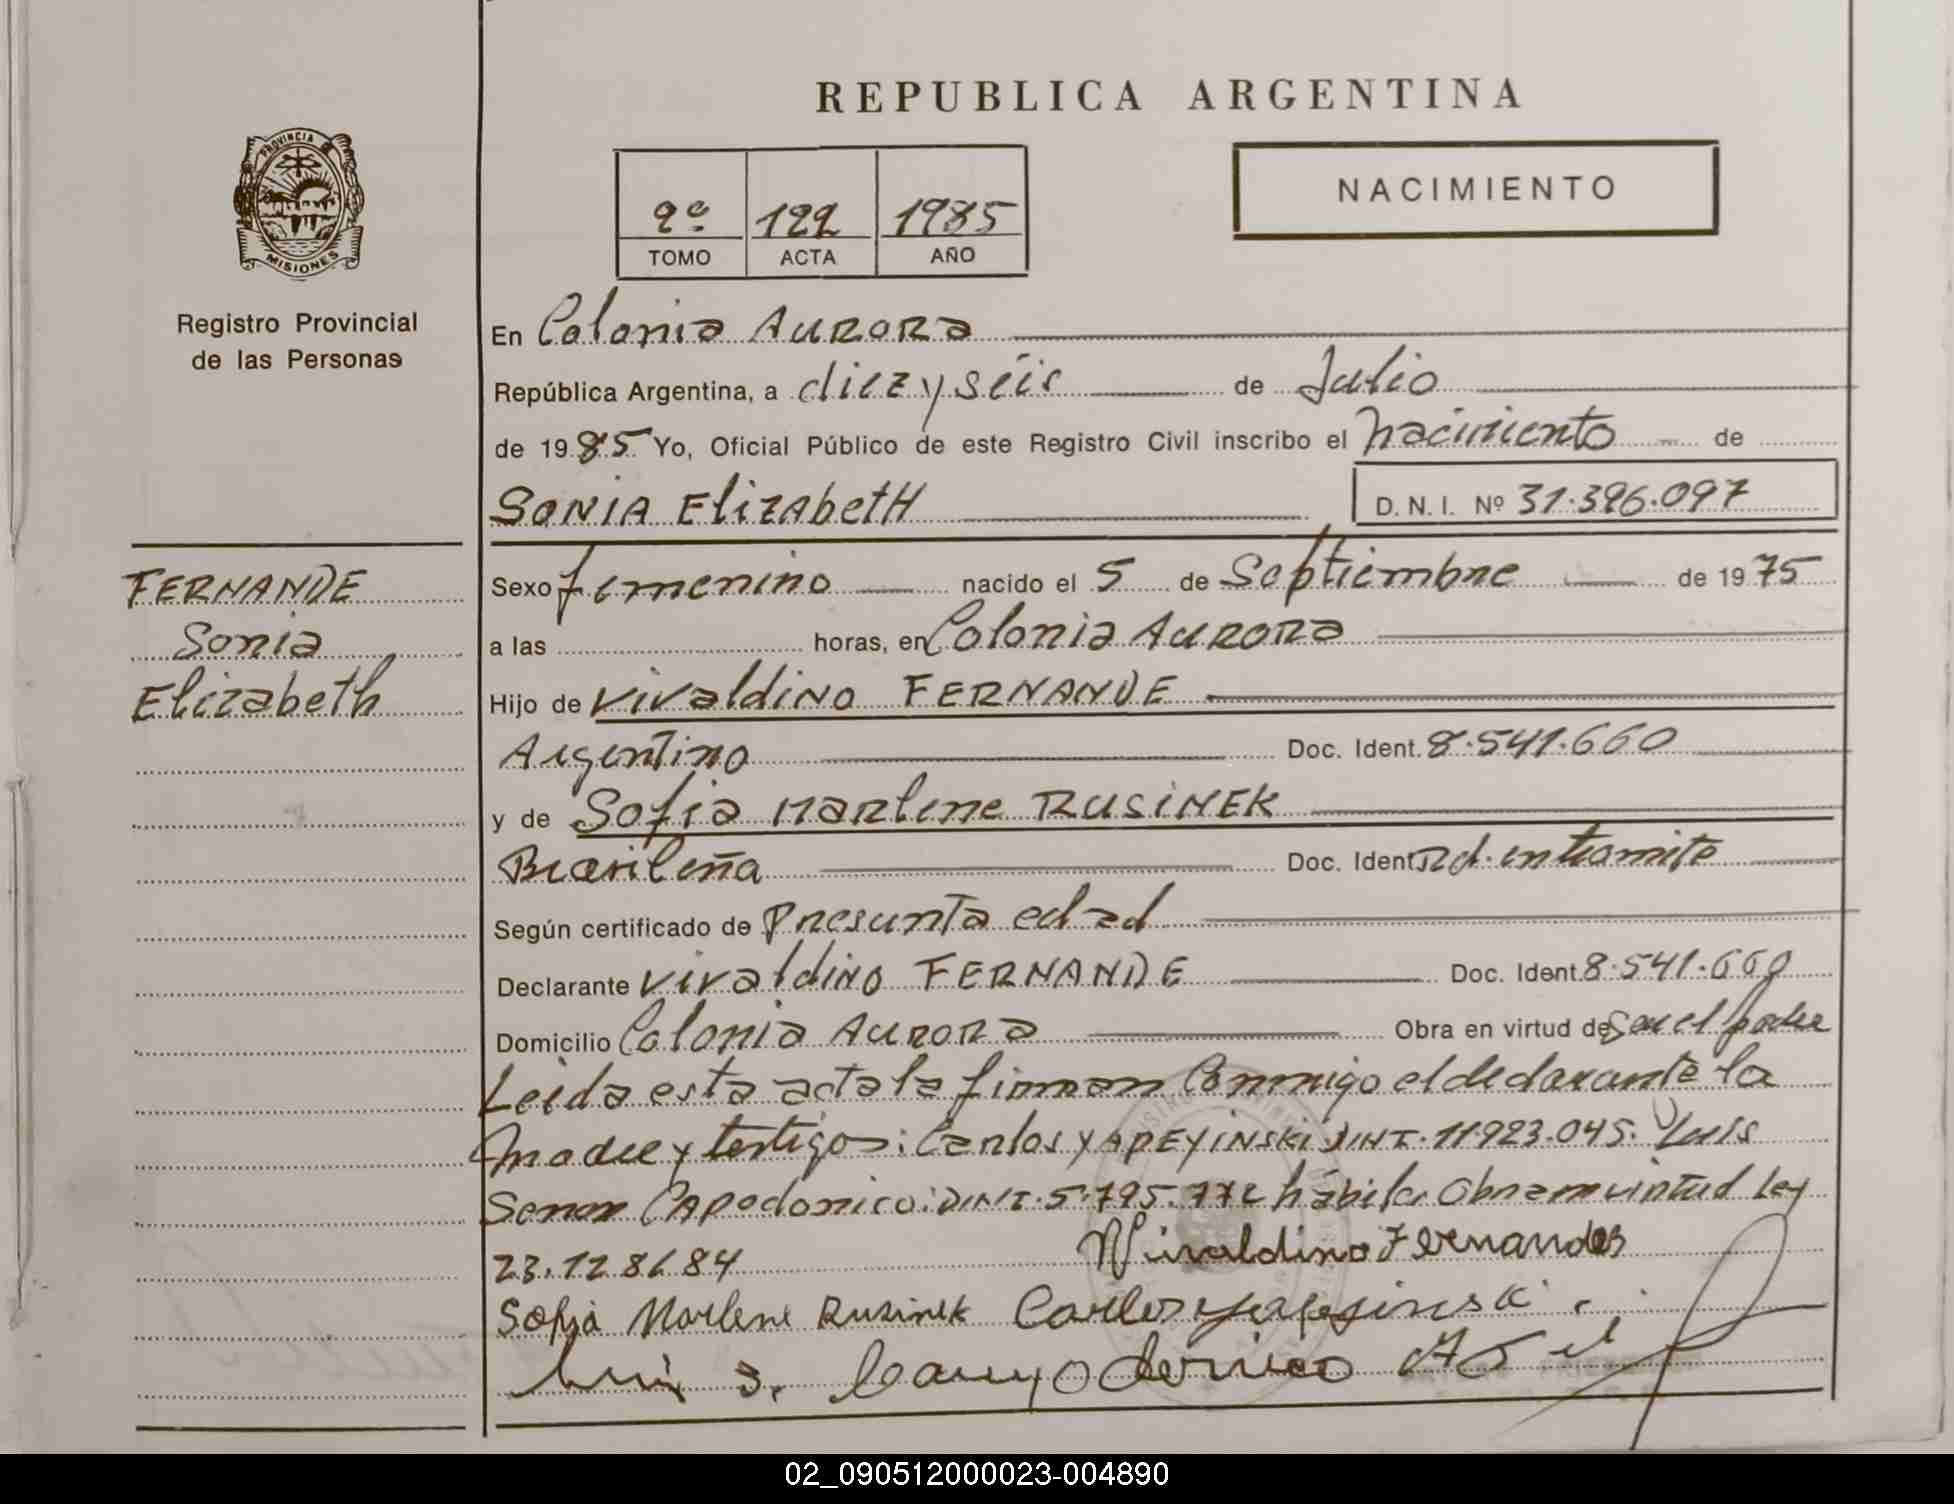 REPUBLICA ARGENTINA
PROVINCIA
MISIONES
Registro Provincial
de las Personas
NACIMIENTO
2º 122 1985
TOMO ACTA AÑO
En Colonia AURORA
República Argentina, a diez y séis de Julio
de 1985 Yo, Oficial Público de este Registro Civil inscribo el Nacimiento de
SONIA ElizAbetH D. N. I. Nº 31.396.097
FERNANDE
Sonia
Elizabeth
Sexo femenino nacido el 5 de Septiembre de 1975
a las horas, en Colonia AURORA
Hijo de vivaldino FERNANDE
Argentino Doc. Ident. 8.541.660
y de Sofia Marlene RUSINEK
Brasileña Doc. Ident Rd. en tramite
Según certificado de Presunta edad
Declarante vivaldino FERNANDE Doc. Ident. 8.541.660
Domicilio Colonia AURORA Obra en virtud de Ser el padre
Leida esta acta la firman Conmigo el declarante la
madre y testigos: Carlos YAPEYINSKI DNI. 11.923.045. Luis
CAPodonico: DNI. 5.795.772 hábiles Obra en virtud Ley
23.128/84
Wivaldino Fernandes
Sofia Marlene Rusinek Carlos
Luis S.
02_090512000023-004890